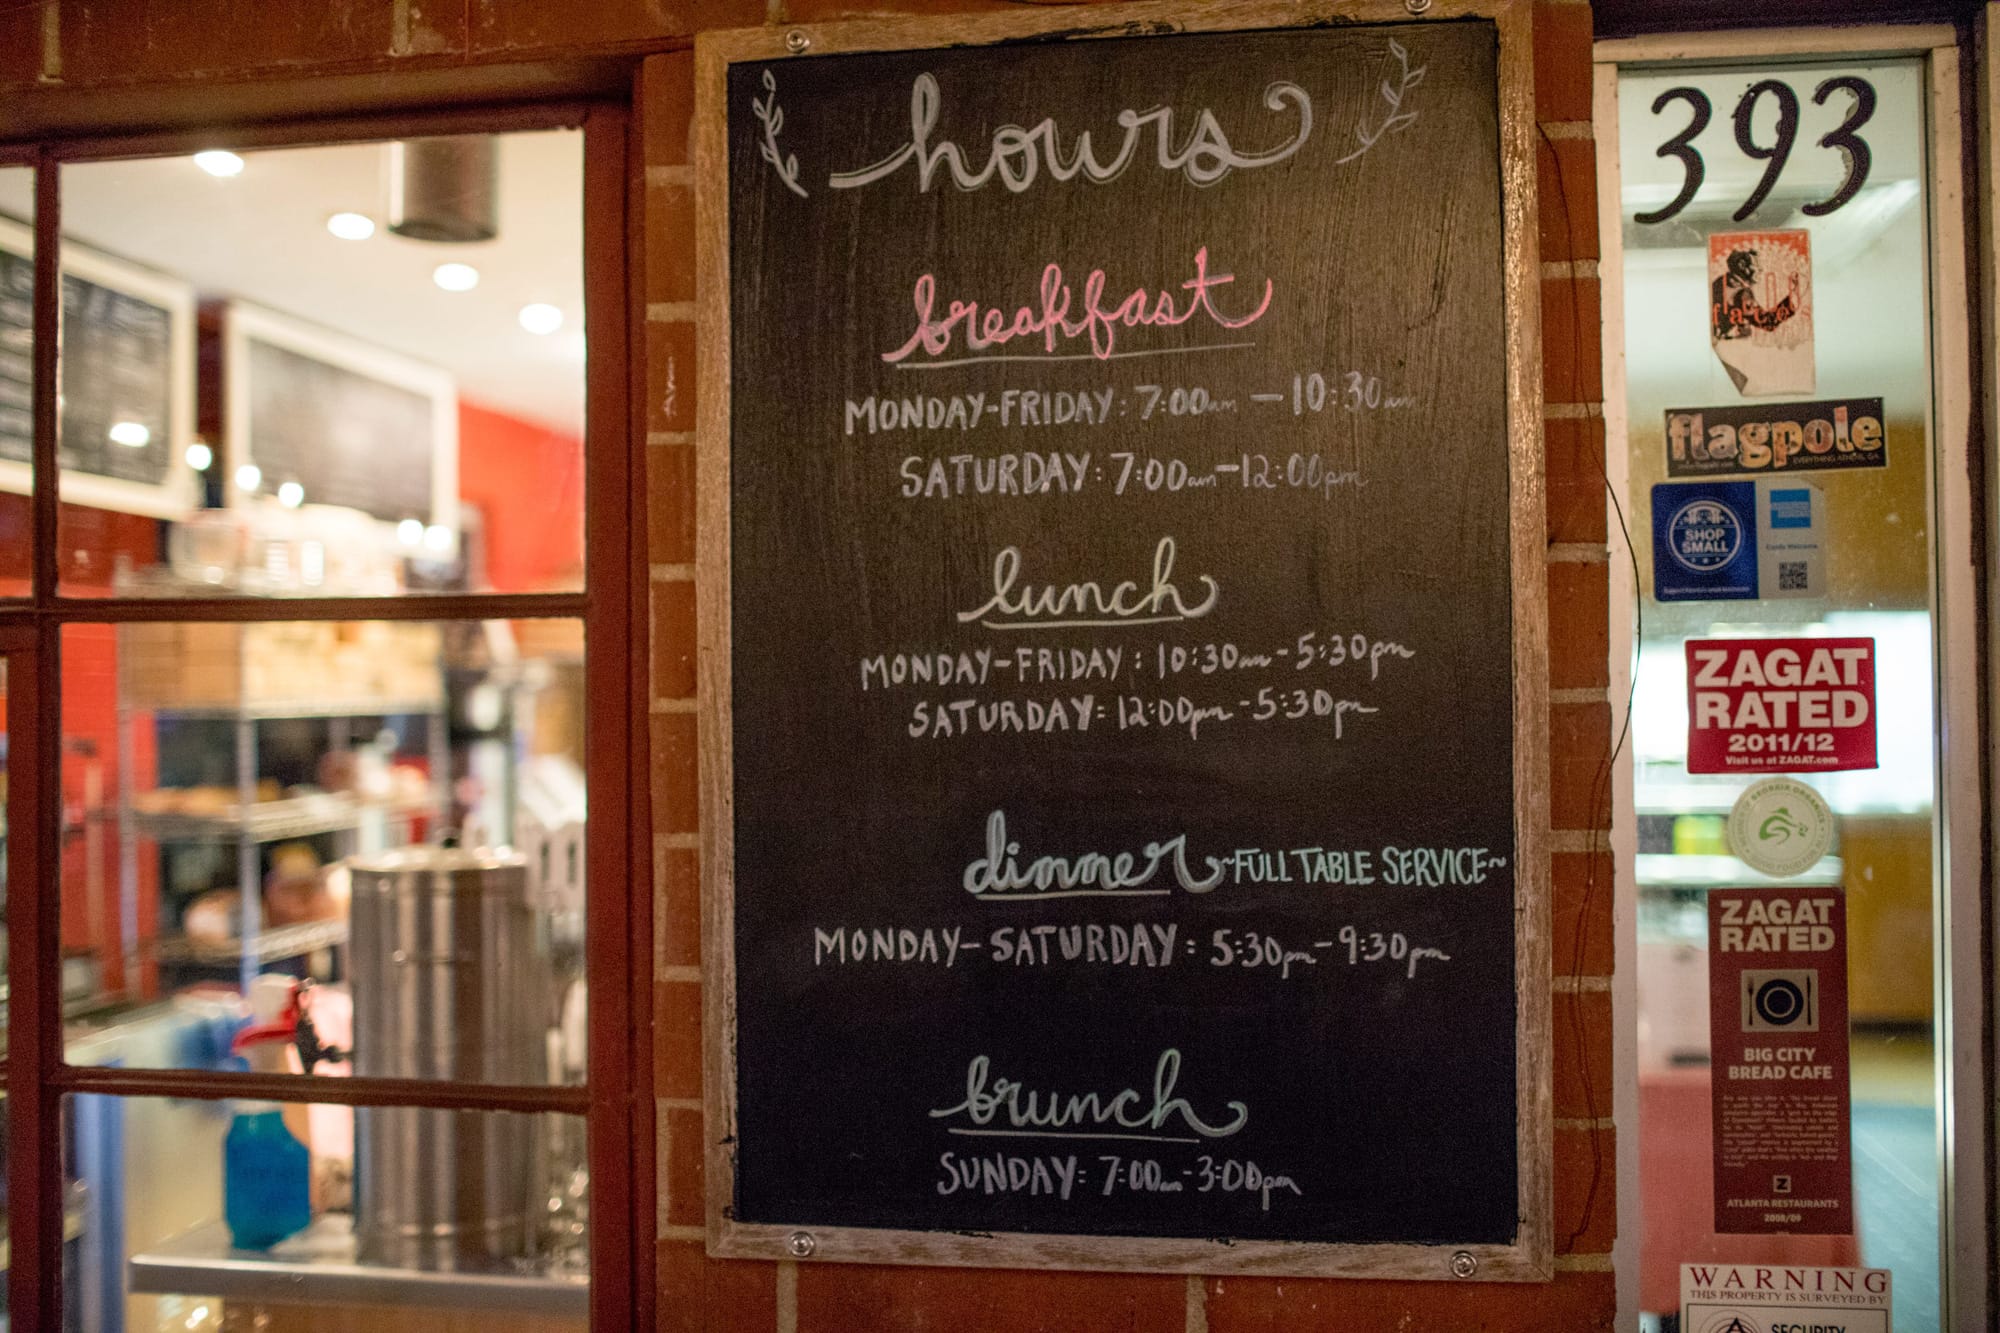 hours
breakfast
MONDAY-FRIDAY: 7:00am - 10:30am
SATURDAY: 7:00am - 12:00pm
lunch
MONDAY-FRIDAY: 10:30am - 5:30pm
SATURDAY: 12:00pm - 5:30pm
dinner ~FULL TABLE SERVICE~
MONDAY-SATURDAY: 5:30pm - 9:30pm
brunch
SUNDAY: 7:00am - 3:00pm
393
flagpole
EVERYTHING ATHENS, GA.
SHOP
SMALL
Cards Welcome
ZAGAT
RATED
2011/12
Visit us at ZAGAT.com
GEORGIA ORGANICS
ZAGAT
RATED
BIG CITY
BREAD CAFE
Z
ATLANTA RESTAURANTS
2008/09
WARNING
THIS PROPERTY IS SURVEYED BY
SECURITY